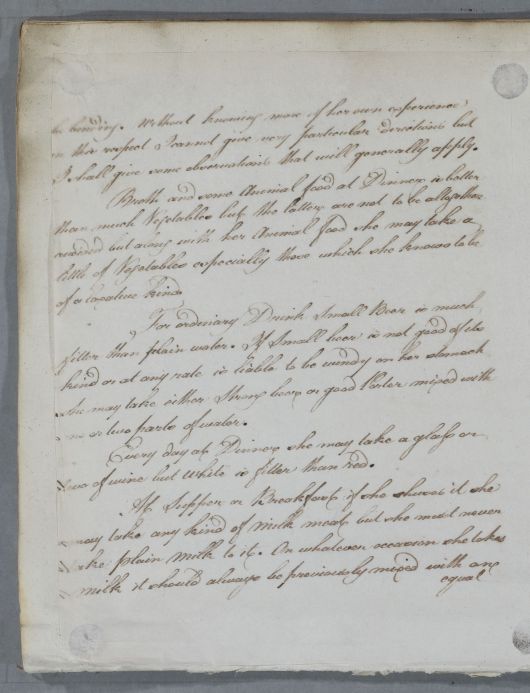 be binding. Without knowing more of her own experience
in this respect I cannot give very particular directions but
I shall give some observations that will generally apply.
Broth and some Animal food at Dinner is better
than much Vegetables but the latter are not to be altogether
avoided but along with her Animal food she may take a
little of Vegetables especially those which she knows to be
of a laxative kind
For ordinary Drink Small Beer is much
fitter than plain water. If Small beer is not good of its
kind or at any rate is liable to be windy on her stomach
she may take either Strong beer or good Porter mixed with
one or two parts of water.
Every day at Dinner she may take a glass or
two of wine but white is fitter than red.
At Supper or Breakfast if she chuses it she
may take any kind of milk meat but she must never
take plain milk to it. On whatever occasion she takes
milk it should always be previously mixed with an
equal